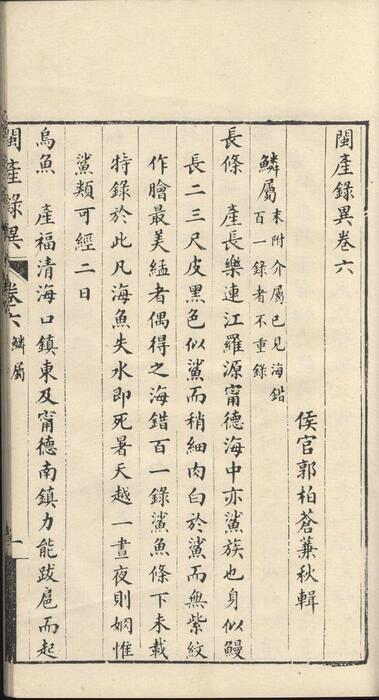 閩產錄異卷六
侯官郭柏蒼蒹秋輯
鱗屬末附介屬已見海錯
百一錄者不重錄
長條　產長樂連江羅源甯德海中亦鯊族也身似鰻
長二三尺皮黑色似鯊而稍細肉白於鯊而無紫紋
作膾最美緍者偶得之海錯百一錄鯊魚條下未載
特錄於此凡海魚失水即死暑天越一晝夜則㛂惟
鯊類可經二日
烏魚　產福清海口鎮東及甯德南鎮力能跋扈而起
閩產錄異
卷六
鱗屬
一